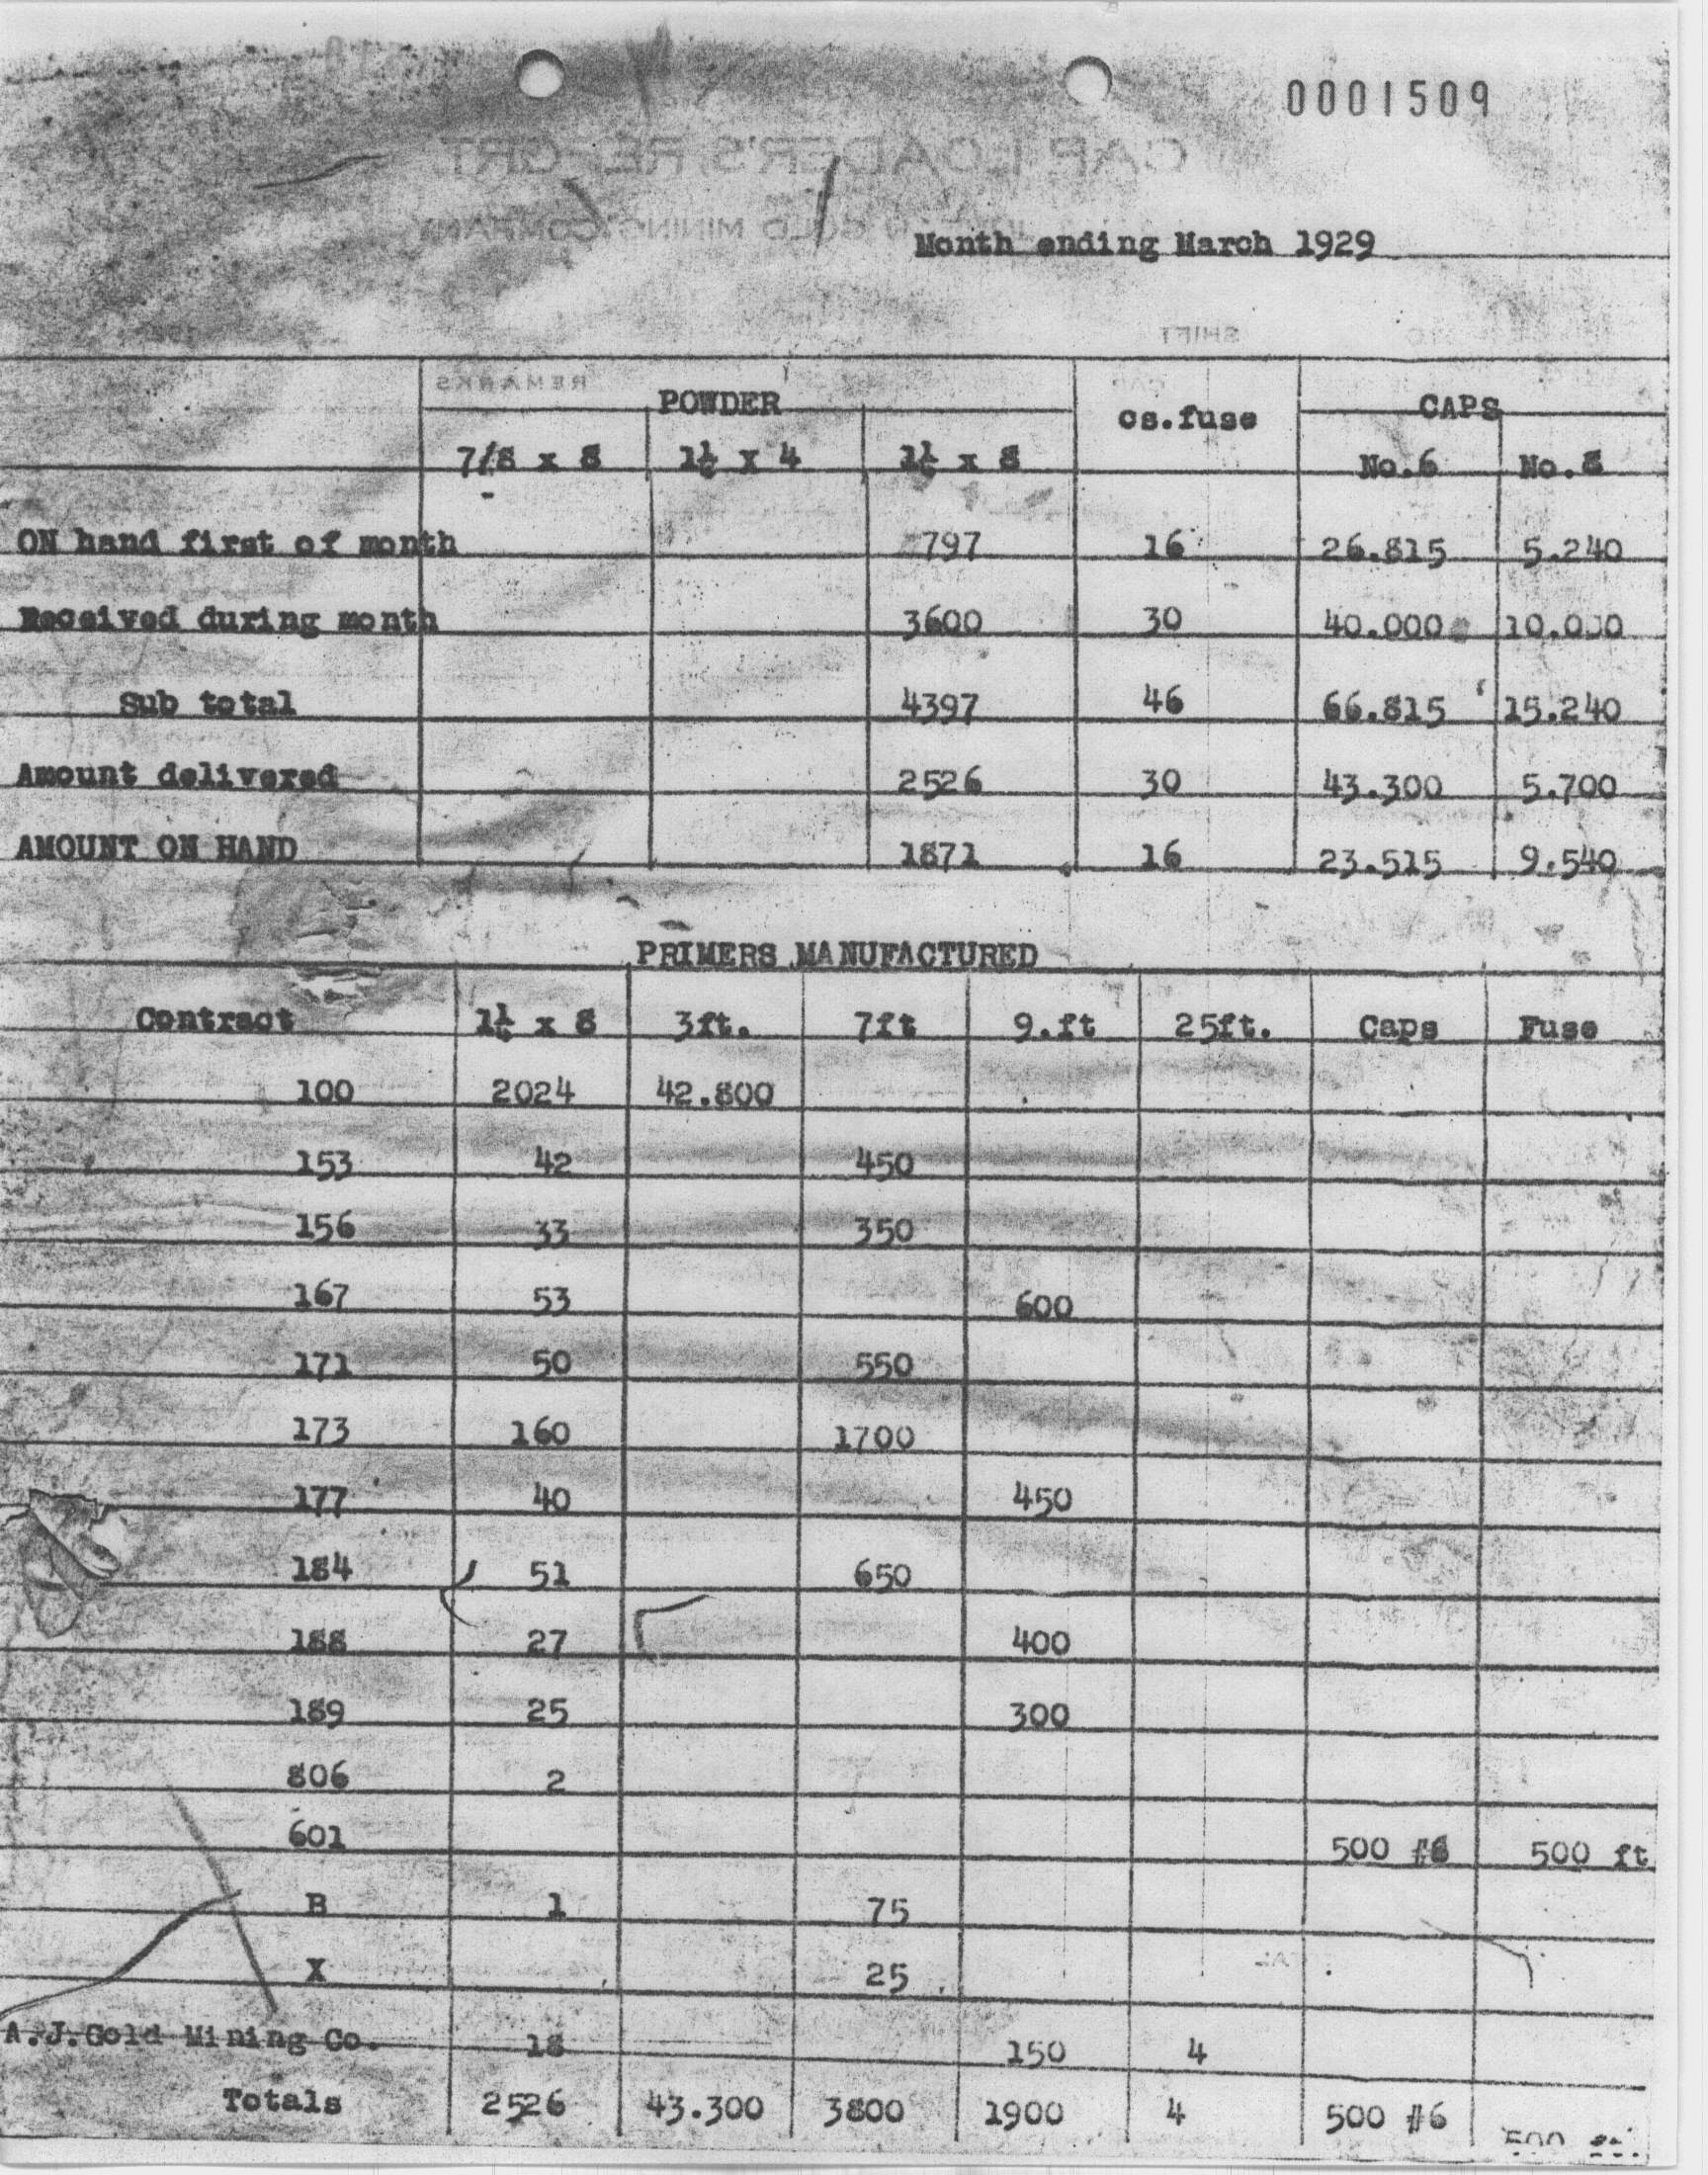 0001509
CAP LOADER'S REPORT
GOLD MINING COMPANY
Month ending March 1929
SHIFT
REMARKS
POWDER cs.fuse CAPS
7/8 x 8 1¼ X 4 1¼ x 8 No.6 No.8
ON hand first of month 797 16 26.815 5.240
Received during month 3600 30 40.000 10.000
Sub total 4397 46 66.815 15.240
Amount delivered 2526 30 43.300 5.700
AMOUNT ON HAND 1871 16 23.515 9.540
PRIMERS MANUFACTURED
Contract 1¼ x 8 3ft. 7ft 9.ft 25ft. Caps Fuse
100 2024 42.800
153 42 450
156 33 350
167 53 600
171 50 550
173 160 1700
177 40 450
184 51 650
188 27 400
189 25 300
806 2
601 500 #6 500 ft
B 1 75
X 25
A.J.Gold Mining Co. 18 150 4
Totals 2526 43.300 3800 1900 4 500 #6 500 ft.